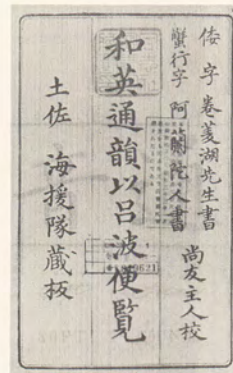 倭字 巻菱湖先生書
蟹行字 阿蘭陀人書
尚友主人校
和英通韻以呂波便覧
土佐 海援隊蔵板